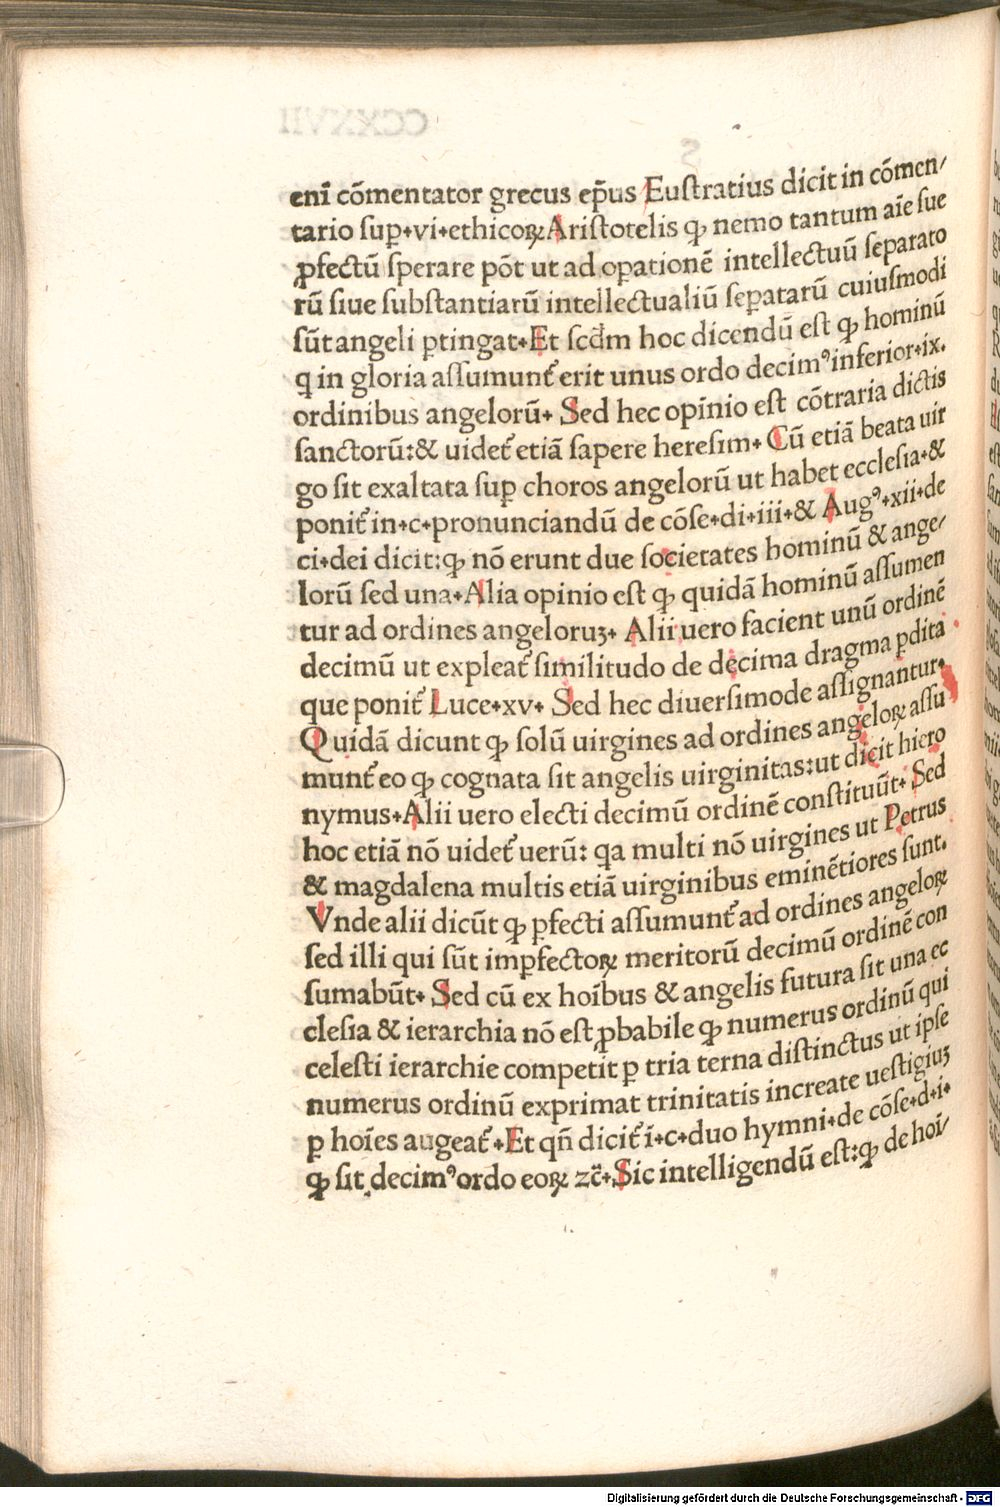 enī cōmentator grecus ep̄us Eustratius dicit in cōmen/
tario sup̱.vi.ethicoꝝ Aristotelis ꝙ nemo tantum aīe sue
ꝓfectū sperare pōt ut ad oꝑationē intellectuū separato
rū siue substantiarū intellectualiū seꝑatarū cuiusmodi
sūt angeli ꝑtingat. Et scd̄m hoc dicendū est ꝙ hominū
q̄ in gloria assumunt᷑ erit unus ordo decimꝰ inferior.ix.
ordinibus angelorū. Sed hec opinio est cōtraria dictis
sanctorū:& uidet᷑ etiā sapere heresim. Cū etiā beata uir
go sit exaltata suꝑ choros angelorū ut habet ecclesia.&
ponit᷑ in.c.pronunciandū de cōse.di.iii.& Augꝰ.xii.de
ci.dei dicit:ꝙ nō erunt due societates hominū & ange/
lorū sed una. Alia opinio est ꝙ quidā hominū assumen
tur ad ordines angeloruꝫ. Alii uero facient unū ordinē
decimū ut expleat᷑ similitudo de decima dragma ꝑdita
que ponit᷑ Luce.xv. Sed hec diuersimode assignantur.
Quidā dicunt ꝙ solū uirgines ad ordines angeloꝝ assu
munt᷑ eo ꝙ cognata sit angelis uirginitas:ut dicit hiero
nymus. Alii uero electi decimū ordinē constituūt. Sed
hoc etiā nō uidet᷑ uerū: qa multi nō uirgines ut Petrus
& magdalena multis etiā uirginibus eminētiores sunt.
Vnde alii dicūt ꝙ ꝑfecti assumunt᷑ ad ordines angeloꝝ
sed illi qui sūt imꝑfectoꝝ meritorū decimū ordinē con
sumabūt. Sed cū ex hoībus & angelis futura sit una ec
clesia & ierarchia nō est ꝓbabile ꝙ numerus ordinū qui
celesti ierarchie competit ꝑ tria terna distinctus ut ipse
numerus ordinū exprimat trinitatis increate uestigiuꝫ
ꝑ hoīes augeat᷑. Et qn̄ dicit᷑ ī.c.duo hymni.de cōse.d.i.
ꝙ sit decimꝰ ordo eoꝝ ⁊c̄. Sic intelligendū est:ꝙ de hoī/
Digitalisierung gefördert durch die Deutsche Forschungsgemeinschaft - DFG